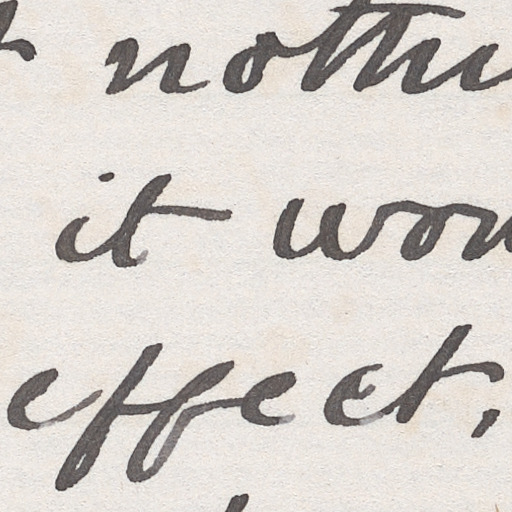 nothi
it wou
effect,